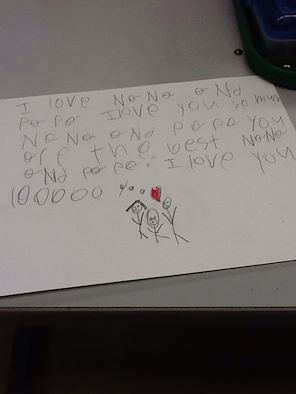 I love NaNa and
papa I love you so much
NaNa and papa you
are the best NaNa
and papa. I love you
100000 %00